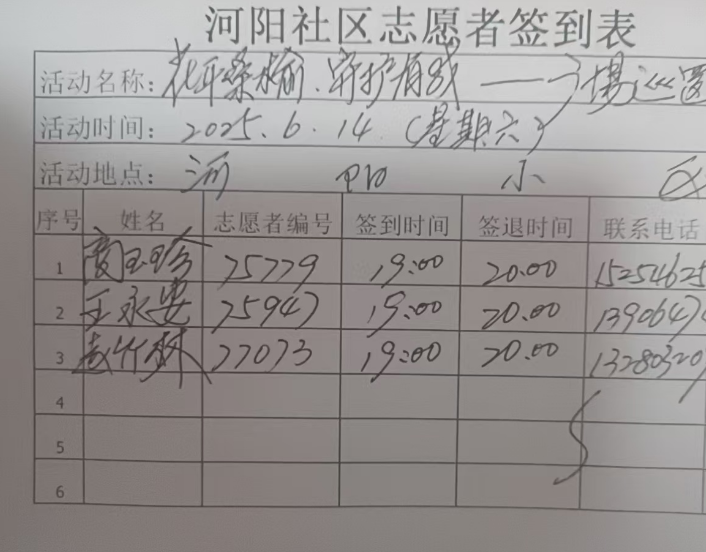 河阳社区志愿者签到表
活动名称: 花开桑榆、守护有我——广场巡逻
活动时间: 2025.6.14.(星期六)
活动地点: 河 阳 小 区
序号 姓名 志愿者编号 签到时间 签退时间 联系电话
1 75779 19:00 20.00 15254625
2 王永安 75947 19:00 20.00 1390647
3 赵竹林 77073 19:00 20.00 13280320
4
5
6